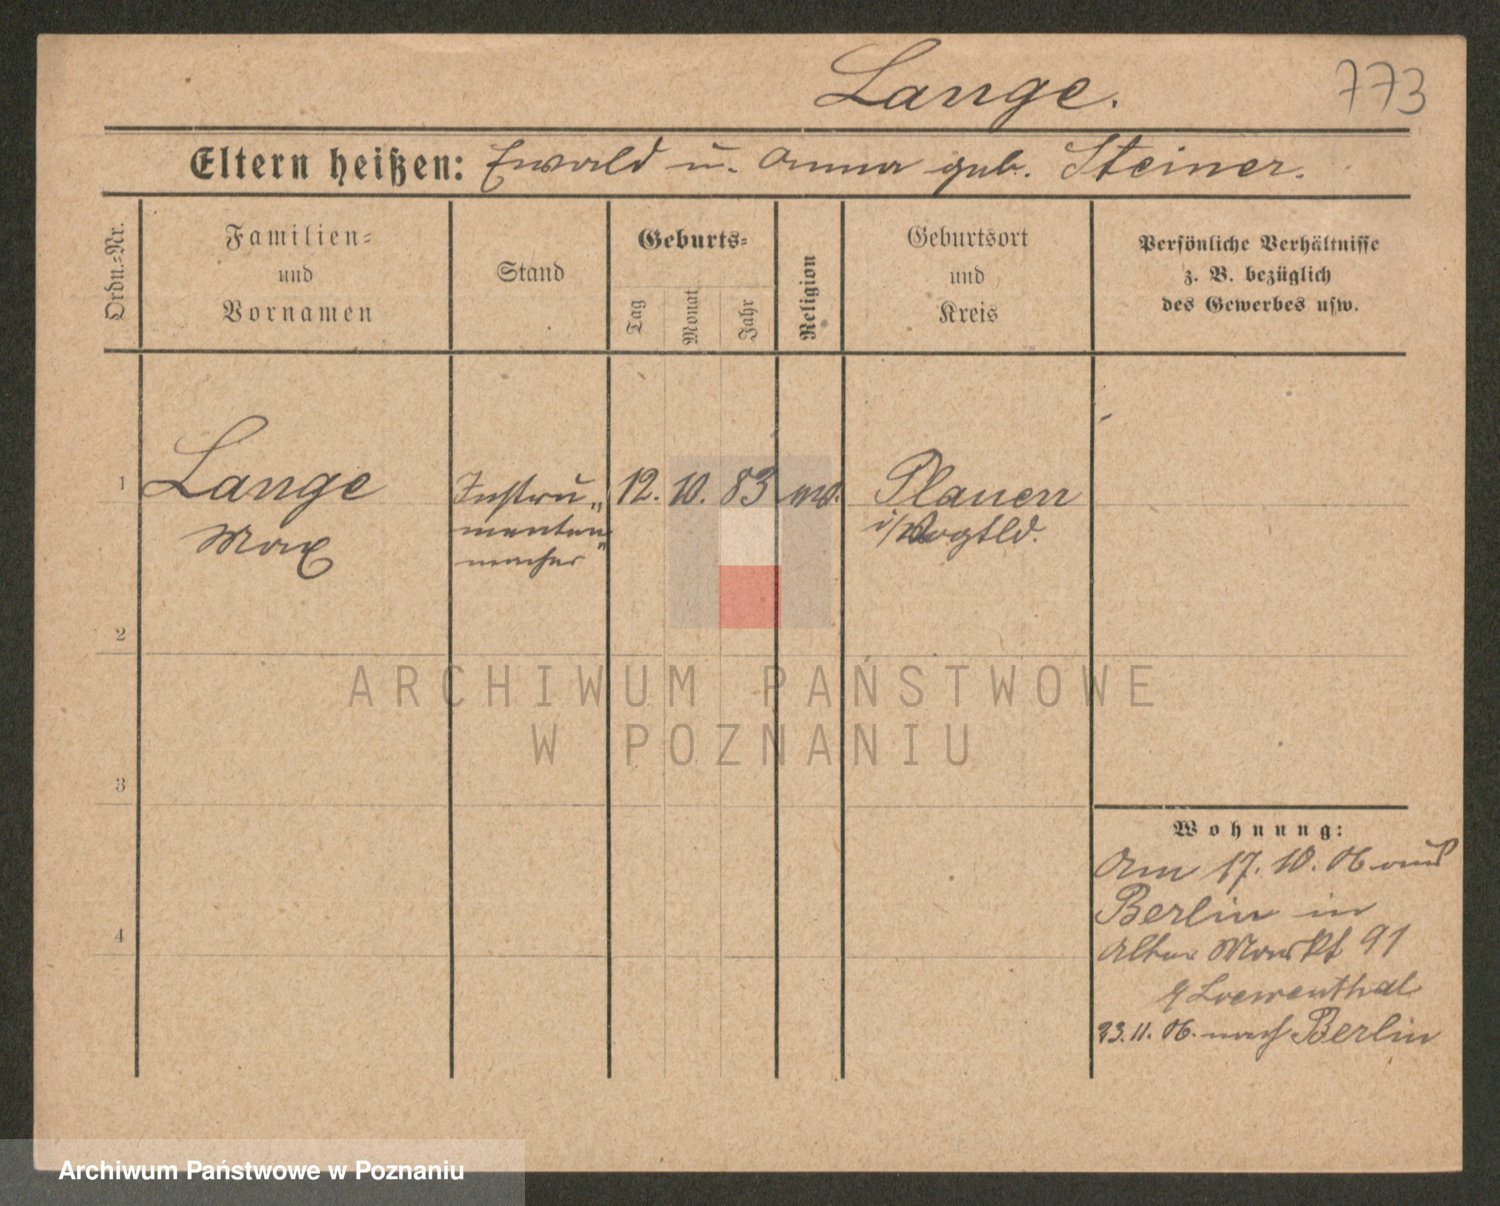 Lange. 773
Eltern heißen: Ewald u. Anna geb. Steiner.
Ordn.-Nr.
Familien-
und
Vornamen
Stand
Geburts-
Tag
Monat
Jahr
Religion
Geburtsort
und
Kreis
Persönliche Verhältnisse
z. B. bezüglich
des Gewerbes usw.
1 Lange Instru- 12. 10. 83 ev. Plauen
Max menten- i/Vogtld.
macher
2
ARCHIWUM PAŃSTWOWE
W POZNANIU
3
Wohnung:
Am 17. 10. 06 aus
Berlin in
4 Alter Markt 91
Loewenthal
23. 11. 06. nach Berlin
Archiwum Państwowe w Poznaniu